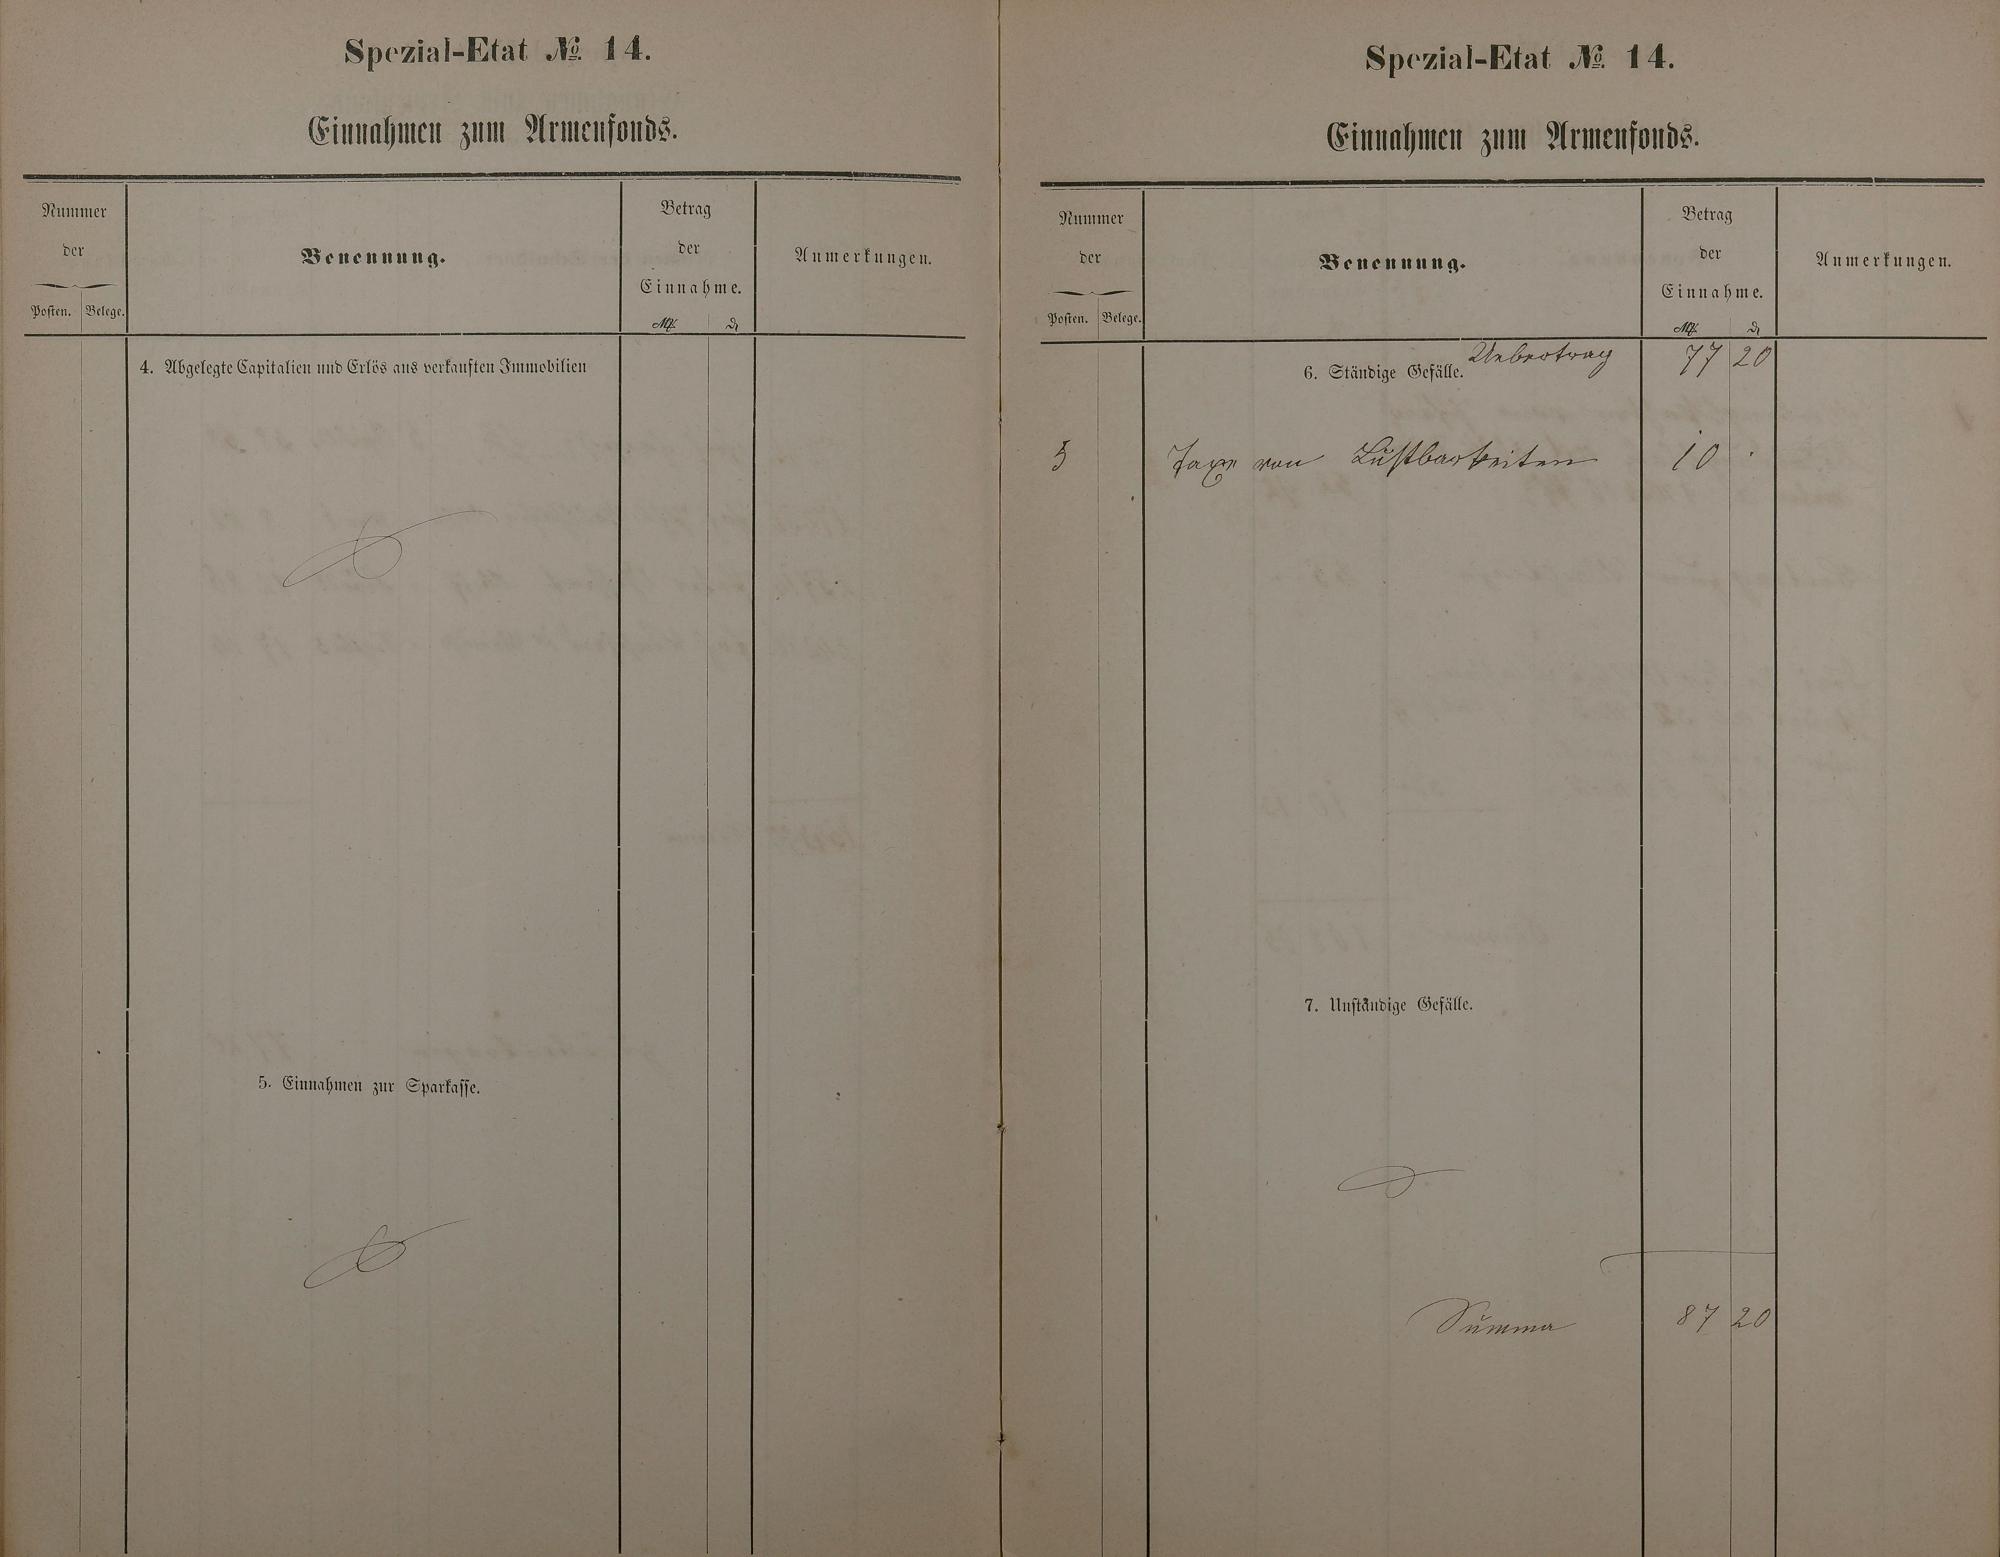 Spezial-Etat № 14.
Einnahmen zum Armenfonds.
Nummer
der
Posten. Belege.
Benennung.
Betrag
der
Einnahme.
M. d.
Anmerkungen.
4. Abgelegte Capitalien und Erlös aus verkauften Immobilien
5. Einnahmen zur Sparkasse.
Spezial-Etat № 14.
Einnahmen zum Armenfonds.
Nummer
der
Posten. Belege.
Benennung.
Betrag
der
Einnahme.
M. d.
Anmerkungen.
Uebertrag 77 20
6. Ständige Gefälle.
5 Taxe von Lustbarkeiten 10 .
7. Unständige Gefälle.
Summa 87 20